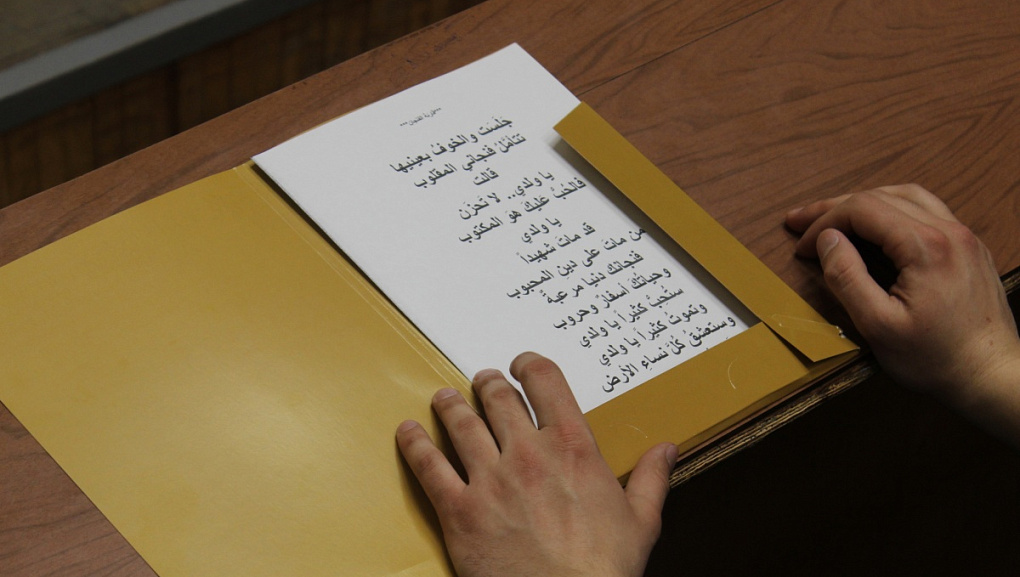 جَلَسَت والخوفُ بعينيها
تتأمَّلُ فنجاني المقلوب
قالت
يا ولدي.. لا تَحزَن
فالحُبُّ عَليكَ هوَ المكتوب
يا ولدي
قد ماتَ شهيداً
من ماتَ على دينِ المحبوب
فنجانك دنيا مرعبةٌ
وحياتُكَ أسفارٌ وحروب
ستُحِبُّ كثيراً يا ولدي
وتموتُ كثيراً يا ولدي
وستعشقُ كُلَّ نساءِ الأرض